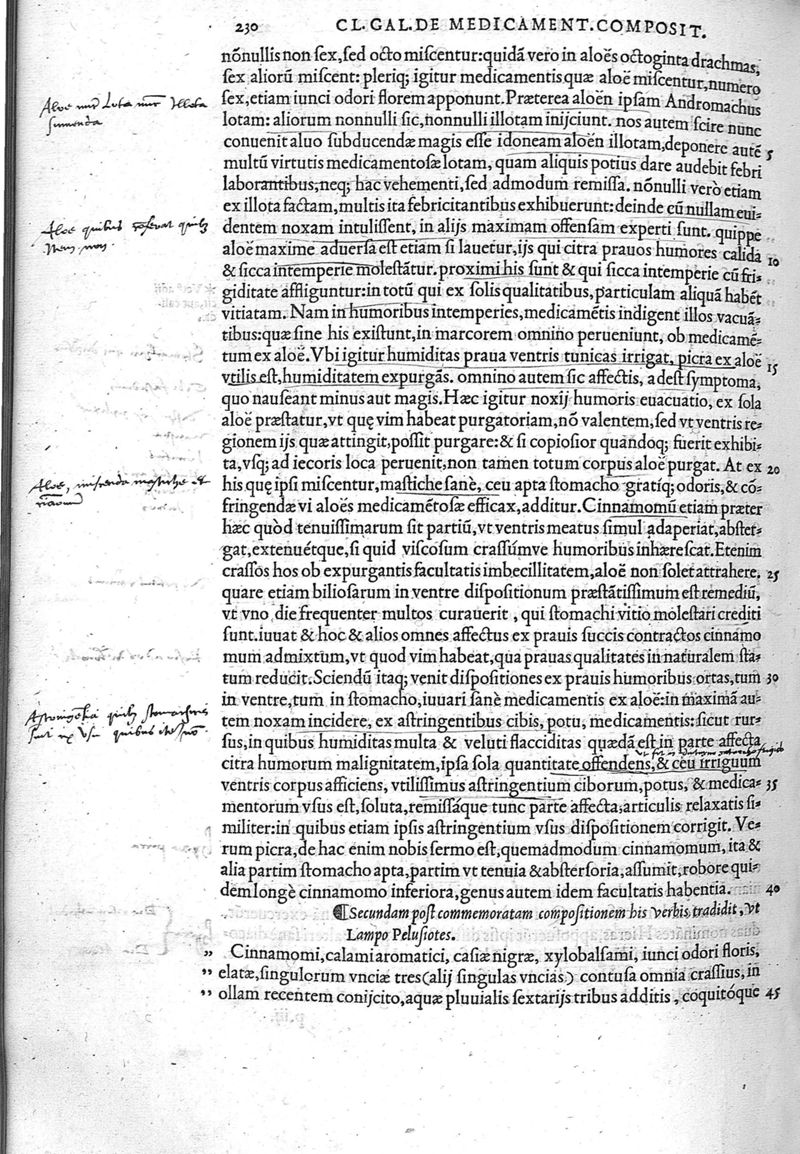 230 CL. GAL. DE MEDICAMENT. COMPOSIT.
nõnullis non ſex, ſed octo miſcentur: quidã vero in aloẽs octoginta drachmas,
ſex aliorũ miſcent: pleriq; igitur medicamentis quæ aloẽ miſcentur, numero
ſex, etiam iunci odori florem apponunt. Præterea aloẽn ipſam Andromachus
lotam: aliorum nonnulli ſic, nonnulli illotam inijciunt. nos autem ſcire nunc
conuenit aluo ſubducendæ magis eſſe idoneam aloẽn illotam, deponere autẽ 5
multũ virtutis medicamentoſæ lotam, quam aliquis potius dare audebit febri
laborantibus, neq; hac vehementi, ſed admodum remiſſa. nõnulli verò etiam
ex illota factam, multis ita febricitantibus exhibuerunt: deinde cũ nullam eui-
dentem noxam intuliſſent, in alijs maximam offenſam experti ſunt. quippe
aloẽ maxime aduerſa eſt etiam ſi lauetur, ijs qui citra prauos humores calida 10
& ſicca intemperie moleſtãtur. proximi his ſunt & qui ſicca intemperie cũ fri-
giditate affliguntur: in totũ qui ex ſolis qualitatibus, particulam aliquã habẽt
vitiatam. Nam in humoribus intemperies, medicamẽtis indigent illos vacuã-
tibus: quæ ſine his exiſtunt, in marcorem omnino perueniunt, ob medicamẽ-
tum ex aloẽ. Vbi igitur humiditas praua ventris tunicas irrigat, picra ex aloẽ 15
vtilis eſt, humiditatem expurgãs. omnino autem ſic affectis, adeſt ſymptoma,
quo nauſeant minus aut magis. Hæc igitur noxij humoris euacuatio, ex ſola
aloẽ præſtatur, vt quę vim habeat purgatoriam, nõ valentem, ſed vt ventris re-
gionem ijs quæ attingit, poſſit purgare: & ſi copioſior quandoq; fuerit exhibi-
ta, vſq; ad iecoris loca peruenit, non tamen totum corpus aloẽ purgat. At ex 20
his quę ipſi miſcentur, maſtiche ſanè, ceu apta ſtomacho gratíq; odoris, & cõ-
fringendæ vi aloẽs medicamẽtoſæ efficax, additur. Cinnamomũ etiam præter
hæc quòd tenuiſſimarum ſit partiũ, vt ventris meatus ſimul adaperiat, abſter-
gat, extenuétque, ſi quid viſcoſum craſſúmve humoribus inhæreſcat. Etenim
craſſos hos ob expurgantis facultatis imbecillitatem, aloẽ non ſolet attrahere, 25
quare etiam bilioſarum in ventre diſpoſitionum præſtãtiſſimum eſt remediũ,
vt vno die frequenter multos curauerit, qui ſtomachi vitio moleſtari crediti
ſunt. iuuat & hoc & alios omnes affectus ex prauis ſuccis contractos cinnamo
mum admixtum, vt quod vim habeat, qua prauas qualitates in naturalem ſta-
tum reducit. Sciendũ itaq; venit diſpoſitiones ex prauis humoribus ortas, tum 30
in ventre, tum in ſtomacho, iuuari ſanè medicamentis ex aloẽ: in maximã au-
tem noxam incidere, ex aſtringentibus cibis, potu, medicamentis: ſicut rur-
ſus, in quibus humiditas multa & veluti flacciditas quædã eſt in parte affecta
citra humorum malignitatem, ipſa ſola quantitate offendens, & ceu irriguum
ventris corpus afficiens, vtiliſſimus aſtringentium ciborum, potus, & medica- 35
mentorum vſus eſt, ſoluta, remiſſáque tunc parte affecta, articulis relaxatis ſi-
militer: in quibus etiam ipſis aſtringentium vſus diſpoſitionem corrigit. Ve-
rum picra, de hac enim nobis ſermo eſt, quemadmodum cinnamomum, ita &
alia partim ſtomacho apta, partim vt tenuia & abſterſoria, aſſumit, robore qui-
dem longè cinnamomo inferiora, genus autem idem facultatis habentia. 40
¶ Secundam poſt commemoratam compoſitionem his verbis tradidit, vt
Lampo Peluſiotes.
„ Cinnamomi, calami aromatici, caſiæ nigræ, xylobalſami, iunci odori floris,
„ elatæ, ſingulorum vnciæ tres (alij ſingulas vncias) contuſa omnia craſſius, in
„ ollam recentem conijcito, aquæ pluuialis ſextarijs tribus additis, coquitóque 45
Aloe
ſumenda
Aloe quibus
Aloe, miſcenda maſtiche et